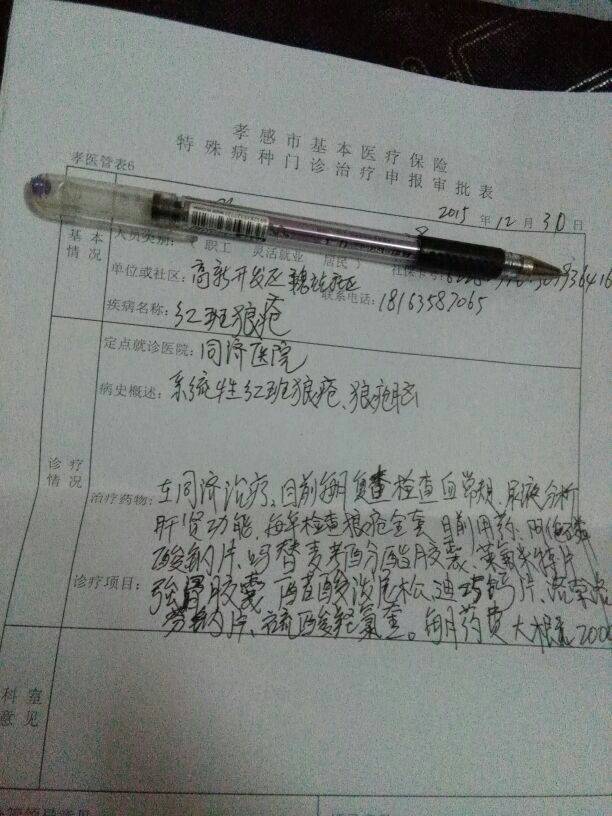 孝感市基本医疗保险
特殊病种门诊治疗申报审批表
孝医管表6
2015 年 12 月 30 日
基本情况
人员类别： 职工 灵活就业 居民
社保卡号：
单位或社区：高新开发区
联系电话：18163587065
疾病名称：红斑狼疮
诊疗情况
定点就诊医院：同济医院
病史概述：系统性红斑狼疮、狼疮脑
治疗药物：在同济治疗、目前每月复查 检查血常规、尿液分析
肝肾功能、每年检查狼疮全套 目前用药、阿伦膦
酸钠片、吗替麦考酚酯胶囊、来氟米特片
诊疗项目：
胶囊 醋酸泼尼松、迪巧钙片、
钠片、硫酸羟氯喹。每月药费大概2000
科室意见